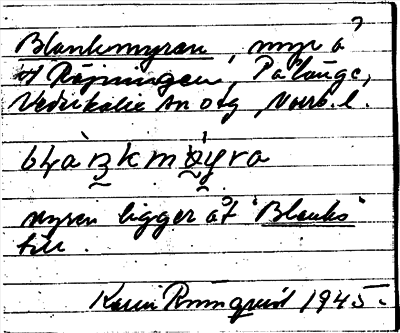 Blankmyran, myr å
st Röjningen, Pålänge,
Nederkalix sn o tg, Norrb. l.
bḷàṇkmo̰y̰ra
myren ligger åt "Blanks"
till.
Karin Rönnquist 1945.